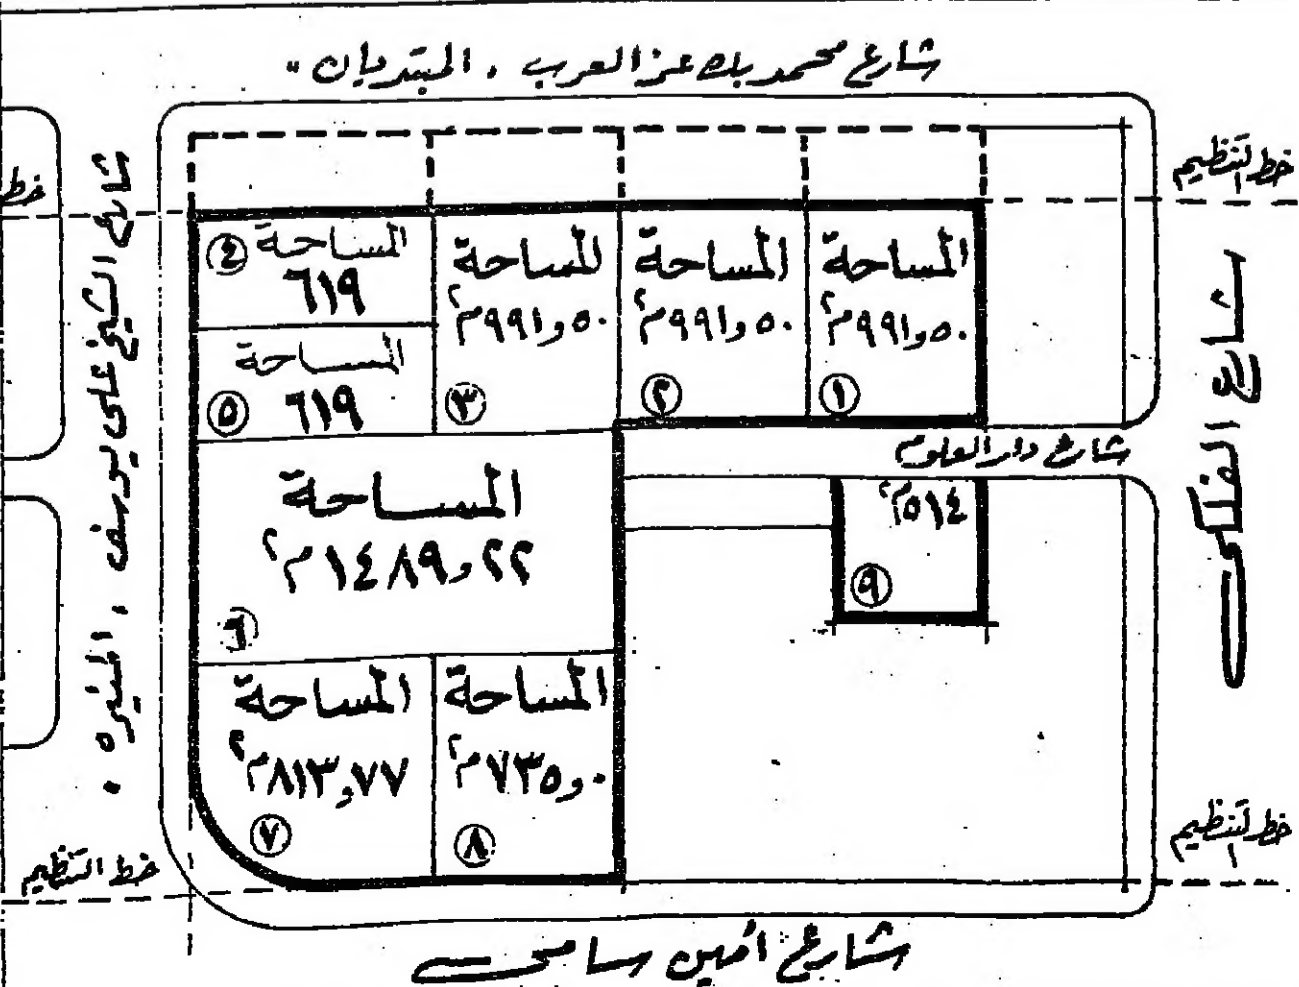 شارع محمد بك عز العرب ، المبتديان "
خط التنظيم
خط
شارع الشيخ على يوسف ، المنيره ،
شارع الفلكى
المساحة
٩٩١٫٥٠ م٢
١
المساحة
٩٩١٫٥٠ م٢
٢
المساحة
٩٩١٫٥٠ م٢
٣
المساحة
٦١٩
٤
المساحة
٦١٩
٥
شارع دار العلوم
٥١٤م٢
٩
المساحة
١٤٨٩٫٢٢ م٢
٦
المساحة
٨١٣٫٧٧ م٢
٧
المساحة
٧٣٥٫٠ م٢
٨
خط التنظيم
خط التنظيم
شارع أمين سامى